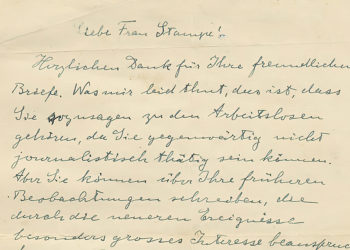 Liebe Frau Stampe!
Herzlichen Dank für Ihre freundlichen
Briefe. Was mir leid thut, das ist, dass
Sie sozusagen zu den Arbeitslosen
gehören, da Sie gegenwärtig nicht
journalistisch thätig sein können.
Aber Sie können über Ihre früheren
Beobachtungen schreiben, die
durch die neueren Ereignisse
besonders grosses Interesse beanspruc